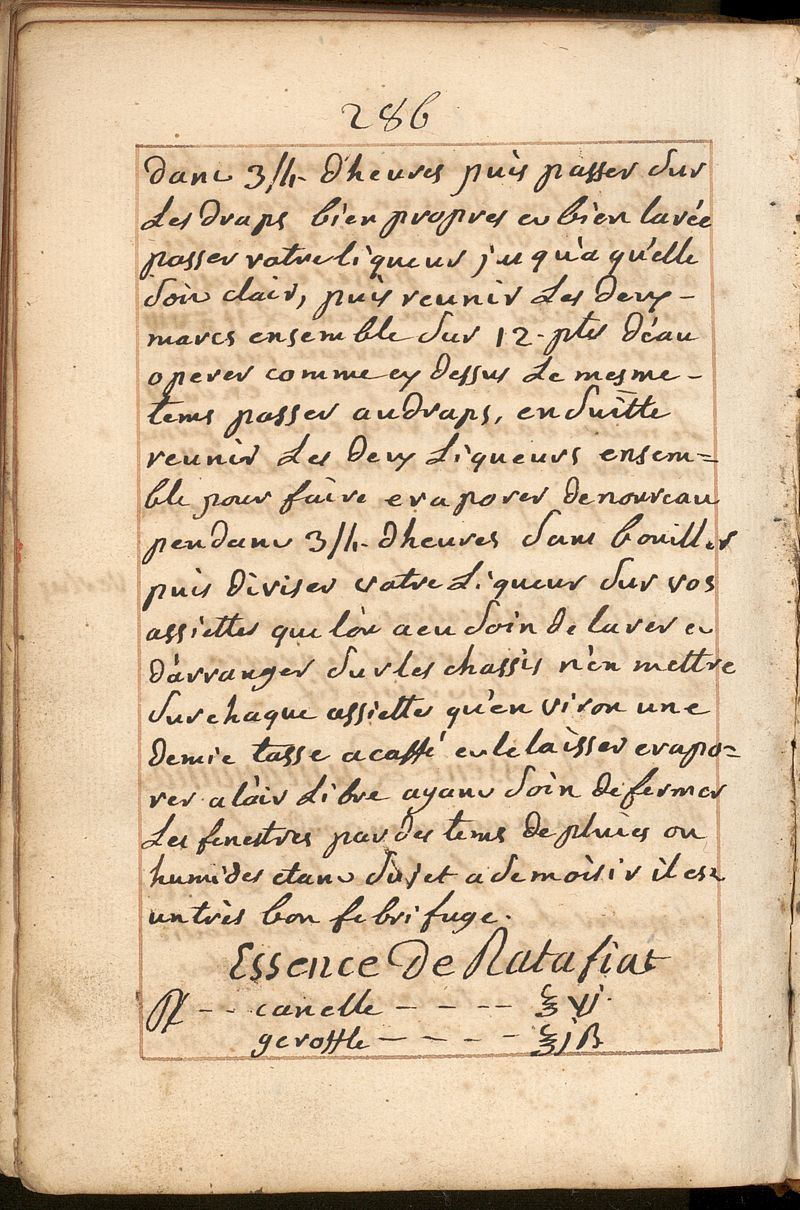 286
dant 3/4 d'heures puis passer sur
Les draps bien propres et bien lavée
passer votre liqueur jusqu'a qu'elle
soit clair, puis reunir Les deux -
marcs ensemble sur 12 ptes d'éau
operer comme cy dessus Le mesme -
tems passer au draps, en suitte
reunir Les deux Liqueurs ensem=
ble pour faire evaporer de nouveau
pendant 3/4 d'heures sans bouiller
puis diviser votre Liqueur sur vos
assiettes que l'on a eu soin de laver et
d'arranger sur les chassis n'en mettre
sur chaque assiettes qu'en viron une
demie tasse a caffé et le laisser evapo=
rer a l'air Libre ayant soin de fermer
Les fenestres par des tems de pluies ou
humides etant sujet a de moisir il est
un très bon febrifuge.
Essence De Ratafiat
℞ - - canelle - - - - ℥ vj
geroffle - - - - ℥ j ß